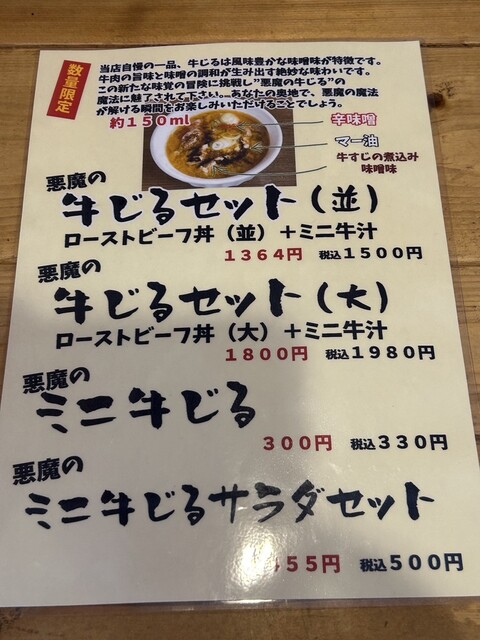 数量限定
当店自慢の一品、牛じるは風味豊かな味噌味が特徴です。
牛肉の旨味と味噌の調和が生み出す絶妙な味わいです。
この新たな味覚の冒険に挑戦し”悪魔の牛じる”の
魔法に魅了されて下さい。あなたの奥地で、悪魔の魔法
が解ける瞬間をお楽しみいただけることでしょう。
約150ml
辛味噌
マー油
牛すじの煮込み
味噌味
悪魔の
牛じるセット(並)
ローストビーフ丼(並)+ミニ牛汁
1364円 税込1500円
悪魔の
牛じるセット(大)
ローストビーフ丼(大)+ミニ牛汁
1800円 税込1980円
悪魔の
ミニ牛じる
300円 税込330円
悪魔の
ミニ牛じるサラダセット
455円 税込500円